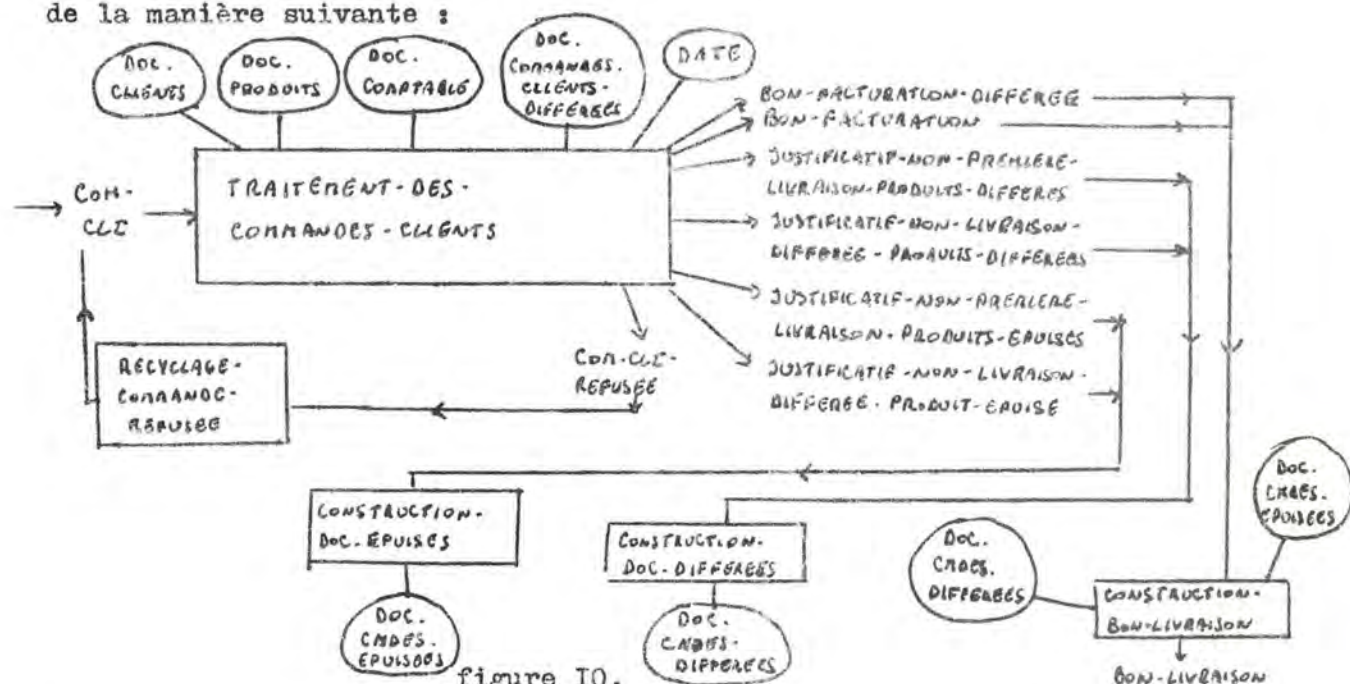 de la manière suivante :
DOC.
CLIENTS
DOC.
PRODUITS
DOC.
COMPTABLE
DOC.
COMMANDES.
CLIENTS-
DIFFEREES
DATE
BON-FACTURATION-DIFFEREE
BON-FACTURATION
JUSTIFICATIF-NON-PREMIERE-
LIVRAISON-PRODUITS-DIFFERES
JUSTIFICATIF-NON-LIVRAISON-
DIFFEREE-PRODUITS-DIFFEREES
JUSTIFICATIF-NON-PREMIERE-
LIVRAISON-PRODUITS-EPUISES
JUSTIFICATIF-NON-LIVRAISON-
DIFFEREE-PRODUIT-EPUISE
COM-
CLI
TRAITEMENT-DES-
COMMANDES-CLIENTS
COM-CLI-
REFUSEE
RECYCLAGE-
COMMANDE-
REFUSEE
CONSTRUCTION-
DOC-EPUISES
DOC.
CMDES.
EPUISEES
CONSTRUCTION-
DOC-DIFFEREES
DOC.
CMDES-
DIFFEREES
DOC.
CMDES.
DIFFEREES
DOC.
CMDES.
EPUISEES
CONSTRUCTION-
BON-LIVRAISON
BON-LIVRAISON
figure IO.